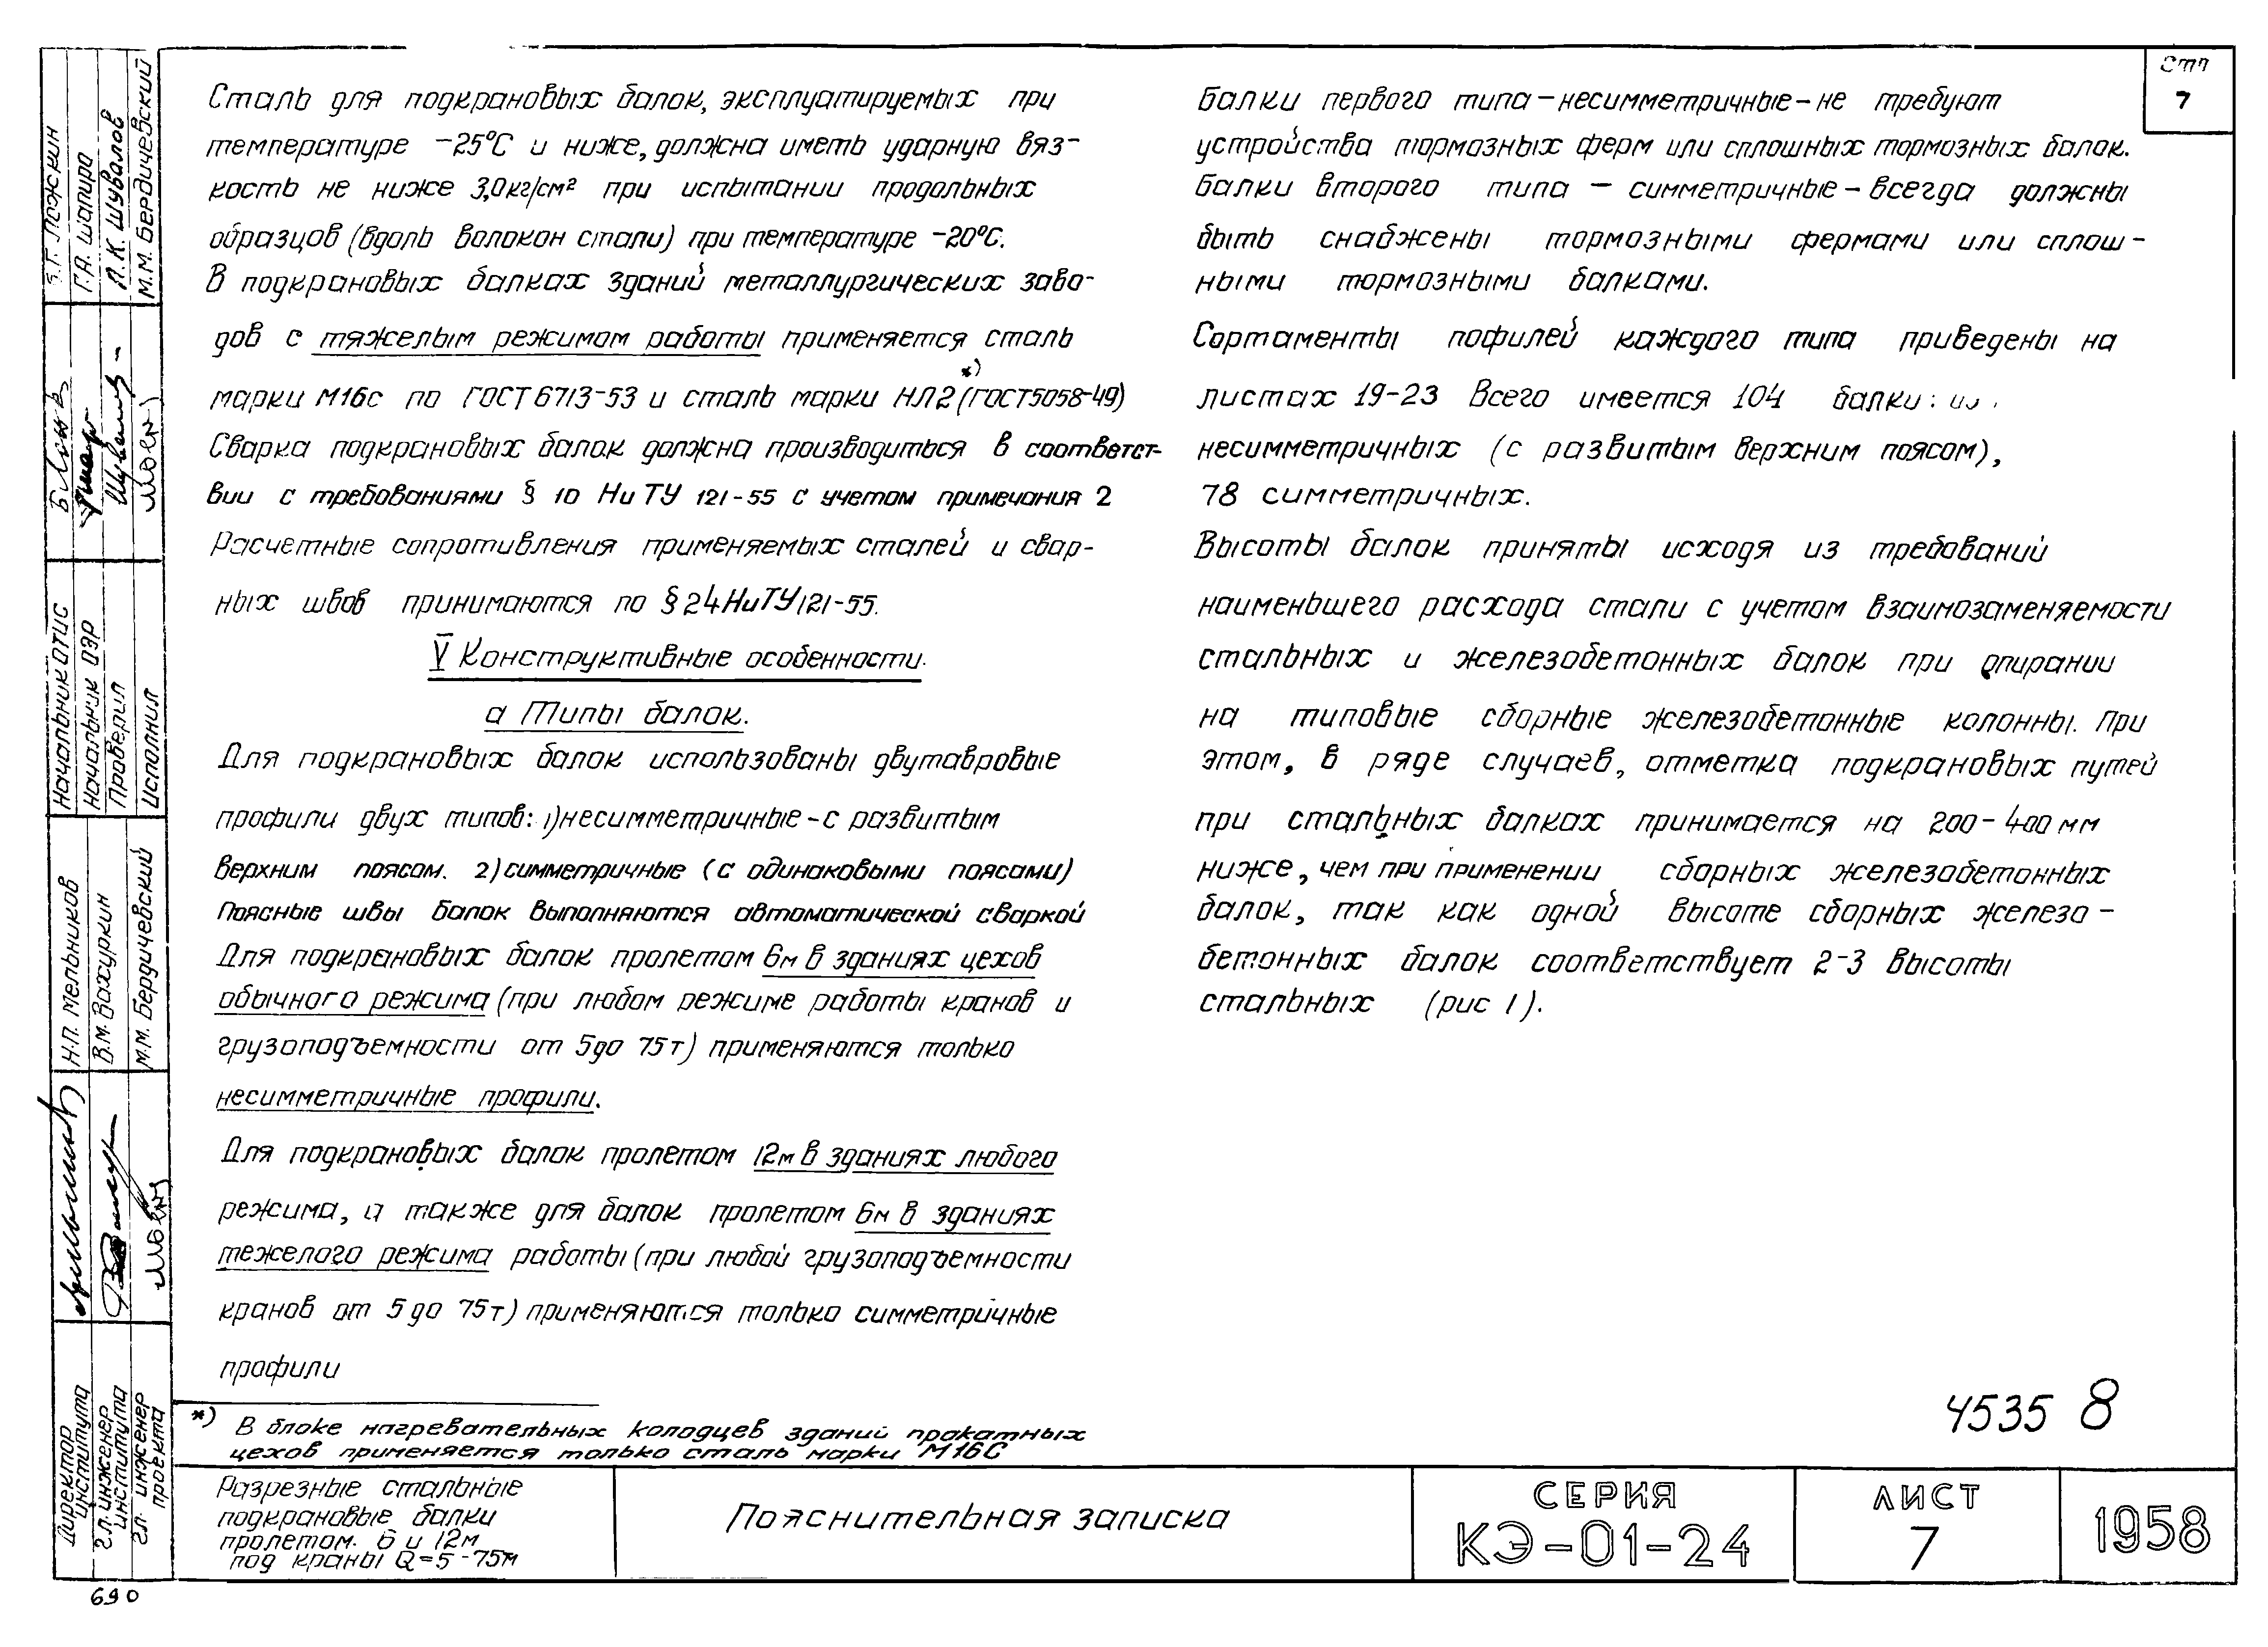 Стр
7
Сталь для подкрановых балок, эксплуатируемых при
температуре -25°С и ниже, должна иметь ударную вяз-
кость не ниже 3,0кг/см² при испытании продольных
образцов (вдоль волокон стали) при температуре -20°С.
В подкрановых балках зданий металлургических заво-
дов с тяжелым режимом работы применяется сталь
марки М16с по ГОСТ 6713-53 и сталь марки НЛ2*) (ГОСТ5058-49)
Сварка подкрановых балок должна производиться в соответст-
вии с требованиями § 10 НиТУ 121-55 с учетом примечания 2
Расчетные сопротивления применяемых сталей и свар-
ных швов принимаются по § 24 НиТУ 121-55.
V Конструктивные особенности.
а Типы балок.
Для подкрановых балок использованы двутавровые
профили двух типов: 1) несимметричные - с развитым
верхним поясом. 2) симметричные (с одинаковыми поясами)
Поясные швы балок выполняются автоматической сваркой
Для подкрановых балок пролетом 6м в зданиях цехов
обычного режима (при любом режиме работы кранов и
грузоподъемности от 5 до 75т) применяются только
несимметричные профили.
Для подкрановых балок пролетом 12м в зданиях любого
режима, а также для балок пролетом 6м в зданиях
тежелого режима работы (при любой грузоподъемности
кранов от 5 до 75т) применяются только симметричные
профили
*) В блоке нагревательных колодцев зданий прокатных
цехов применяется только сталь марки М16С
Балки первого типа - несимметричные - не требуют
устройства тормозных ферм или сплошных тормозных балок.
Балки второго типа - симметричные - всегда должны
быть снабжены тормозными фермами или сплош-
ными тормозными балками.
Сортаменты пофилей каждого типа приведены на
листах 19-23 Всего имеется 104 балки:
несимметричных (с развитым верхним поясом),
78 симметричных.
Высоты балок приняты исходя из требований
наименьшего расхода стали с учетом взаимозаменяемости
стальных и железобетонных балок при опирании
на типовые сборные железобетонные колонны. При
этом, в ряде случаев, отметка подкрановых путей
при стальных балках принимается на 200-400 мм
ниже, чем при применении сборных железобетонных
балок, так как одной высоте сборных железо-
бетонных балок соответствует 2-3 высоты
стальных (рис 1).
4535 8
Разрезные стальные
подкрановые балки
пролетом. 6 и 12м
под краны Q=5-75т
Пояснительная записка
СЕРИЯ
КЭ-01-24
ЛИСТ
7
1958
Директор института
Н.П. Мельников
Гл. инженер института
В.М. Вахуркин
Гл. инженер проекта
М.М. Бердичевский
Начальник ОТИС
Начальник ОЭР
Г.А. Шапиро
Проверил
Л.К. Шувалов
Исполнил
М.М. Бердичевский
690